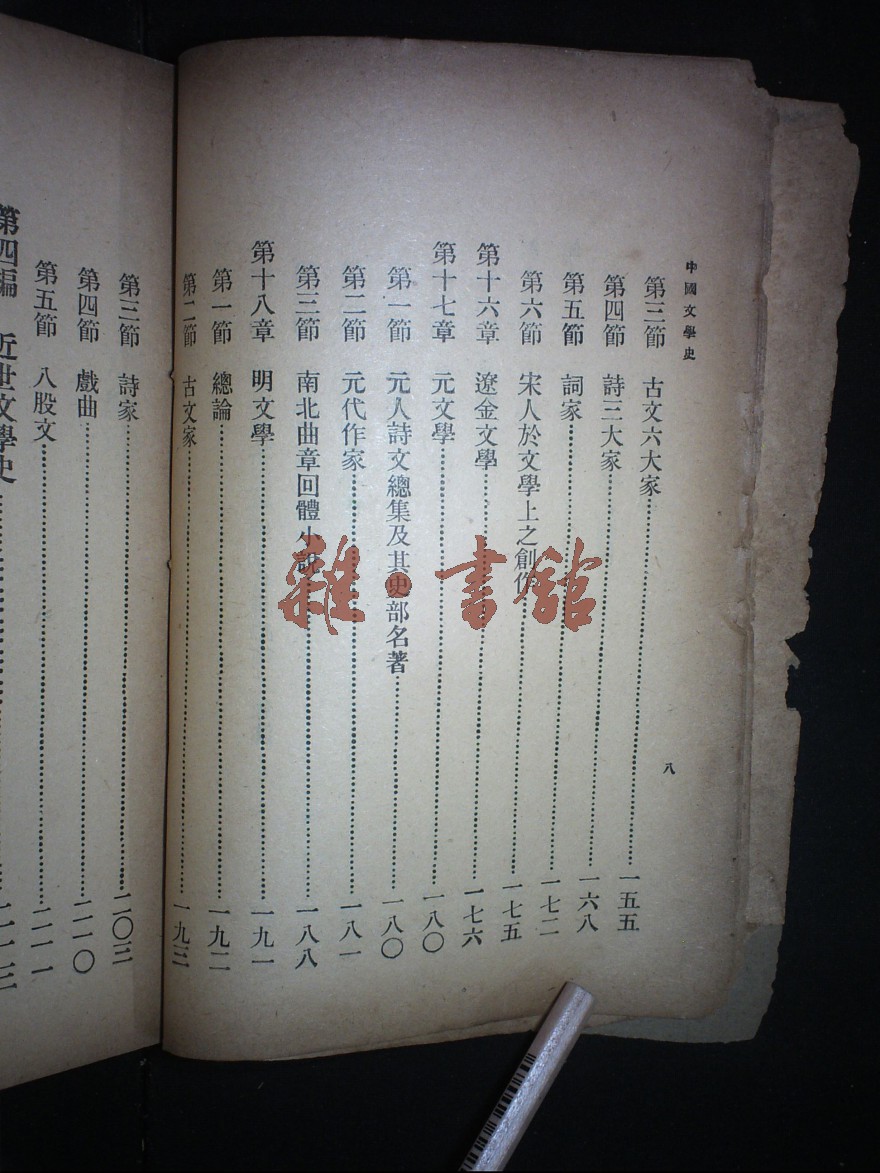 中國文學史
八
第三節 古文六大家……一五五
第四節 詩三大家……一六八
第五節 詞家……一七二
第六節 宋人於文學上之創作……一七五
第十六章 遼金文學……一七六
第十七章 元文學……一八〇
第一節 元人詩文總集及其史部名著……一八〇
第二節 元代作家……一八一
第三節 南北曲章回體小說……一八八
第十八章 明文學……一九一
第一節 總論……一九二
第二節 古文家……一九三
第三節 詩家……二〇三
第四節 戲曲……二一〇
第五節 八股文……二一一
第四編 近世文學史……二一三
雜·書館